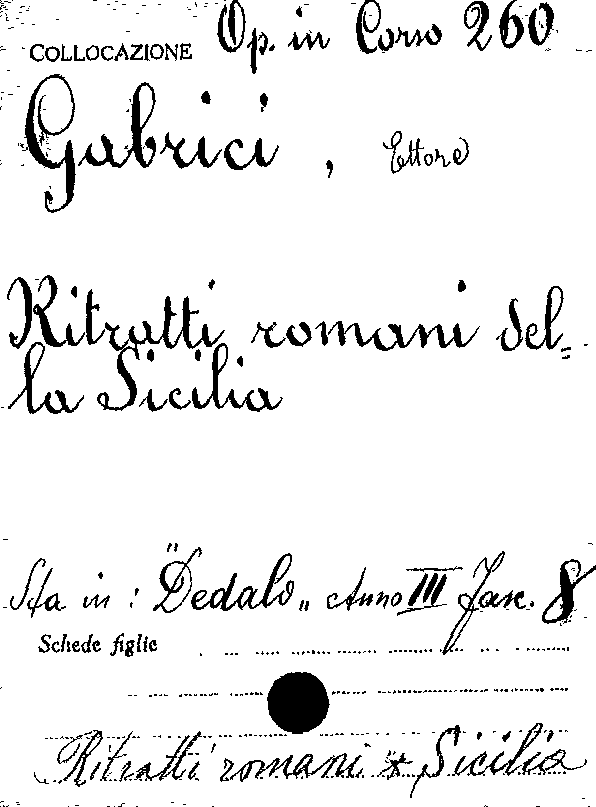 COLLOCAZIONE Op. in Corso 260
Gabrici, Ettore
Ritratti romani del=
la Sicilia
Sta in: "Dedalo„ Anno III Fasc. 8
Schede figlie
Ritratti romani * Sicilia